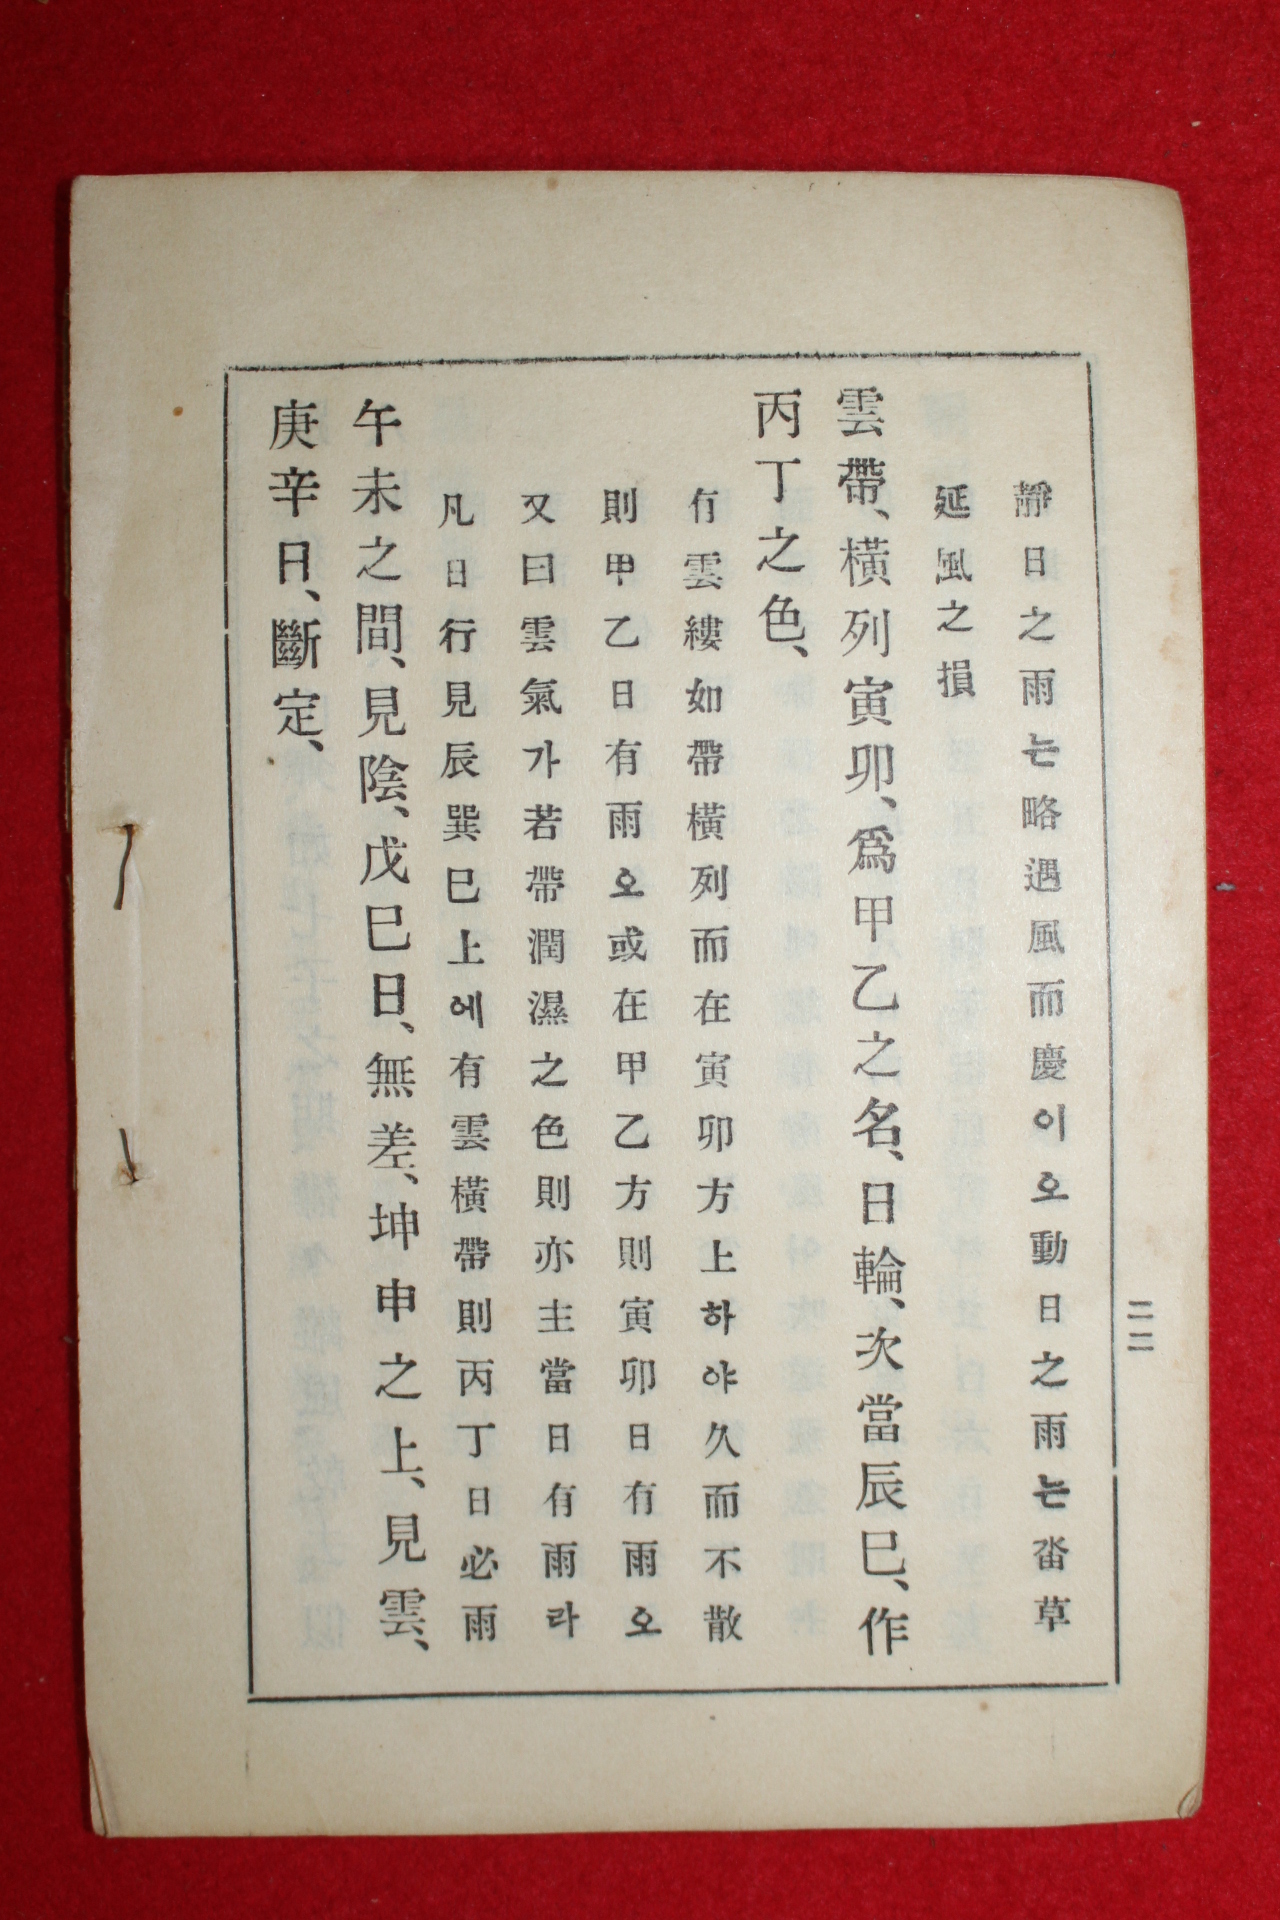 靜日之雨는略遇風而慶이오動日之雨는畓草
延風之損
雲帶、橫列寅卯、爲甲乙之名、日輪、次當辰巳、作
丙丁之色、
有雲縷如帶橫列而在寅卯方上하야久而不散
則甲乙日有雨오或在甲乙方則寅卯日有雨오
又曰雲氣가若帶潤濕之色則亦主當日有雨라
凡日行見辰巽巳上에有雲橫帶則丙丁日必雨
午未之間、見陰、戊巳日、無差、坤申之上、見雲、
庚辛日、斷定、
二二